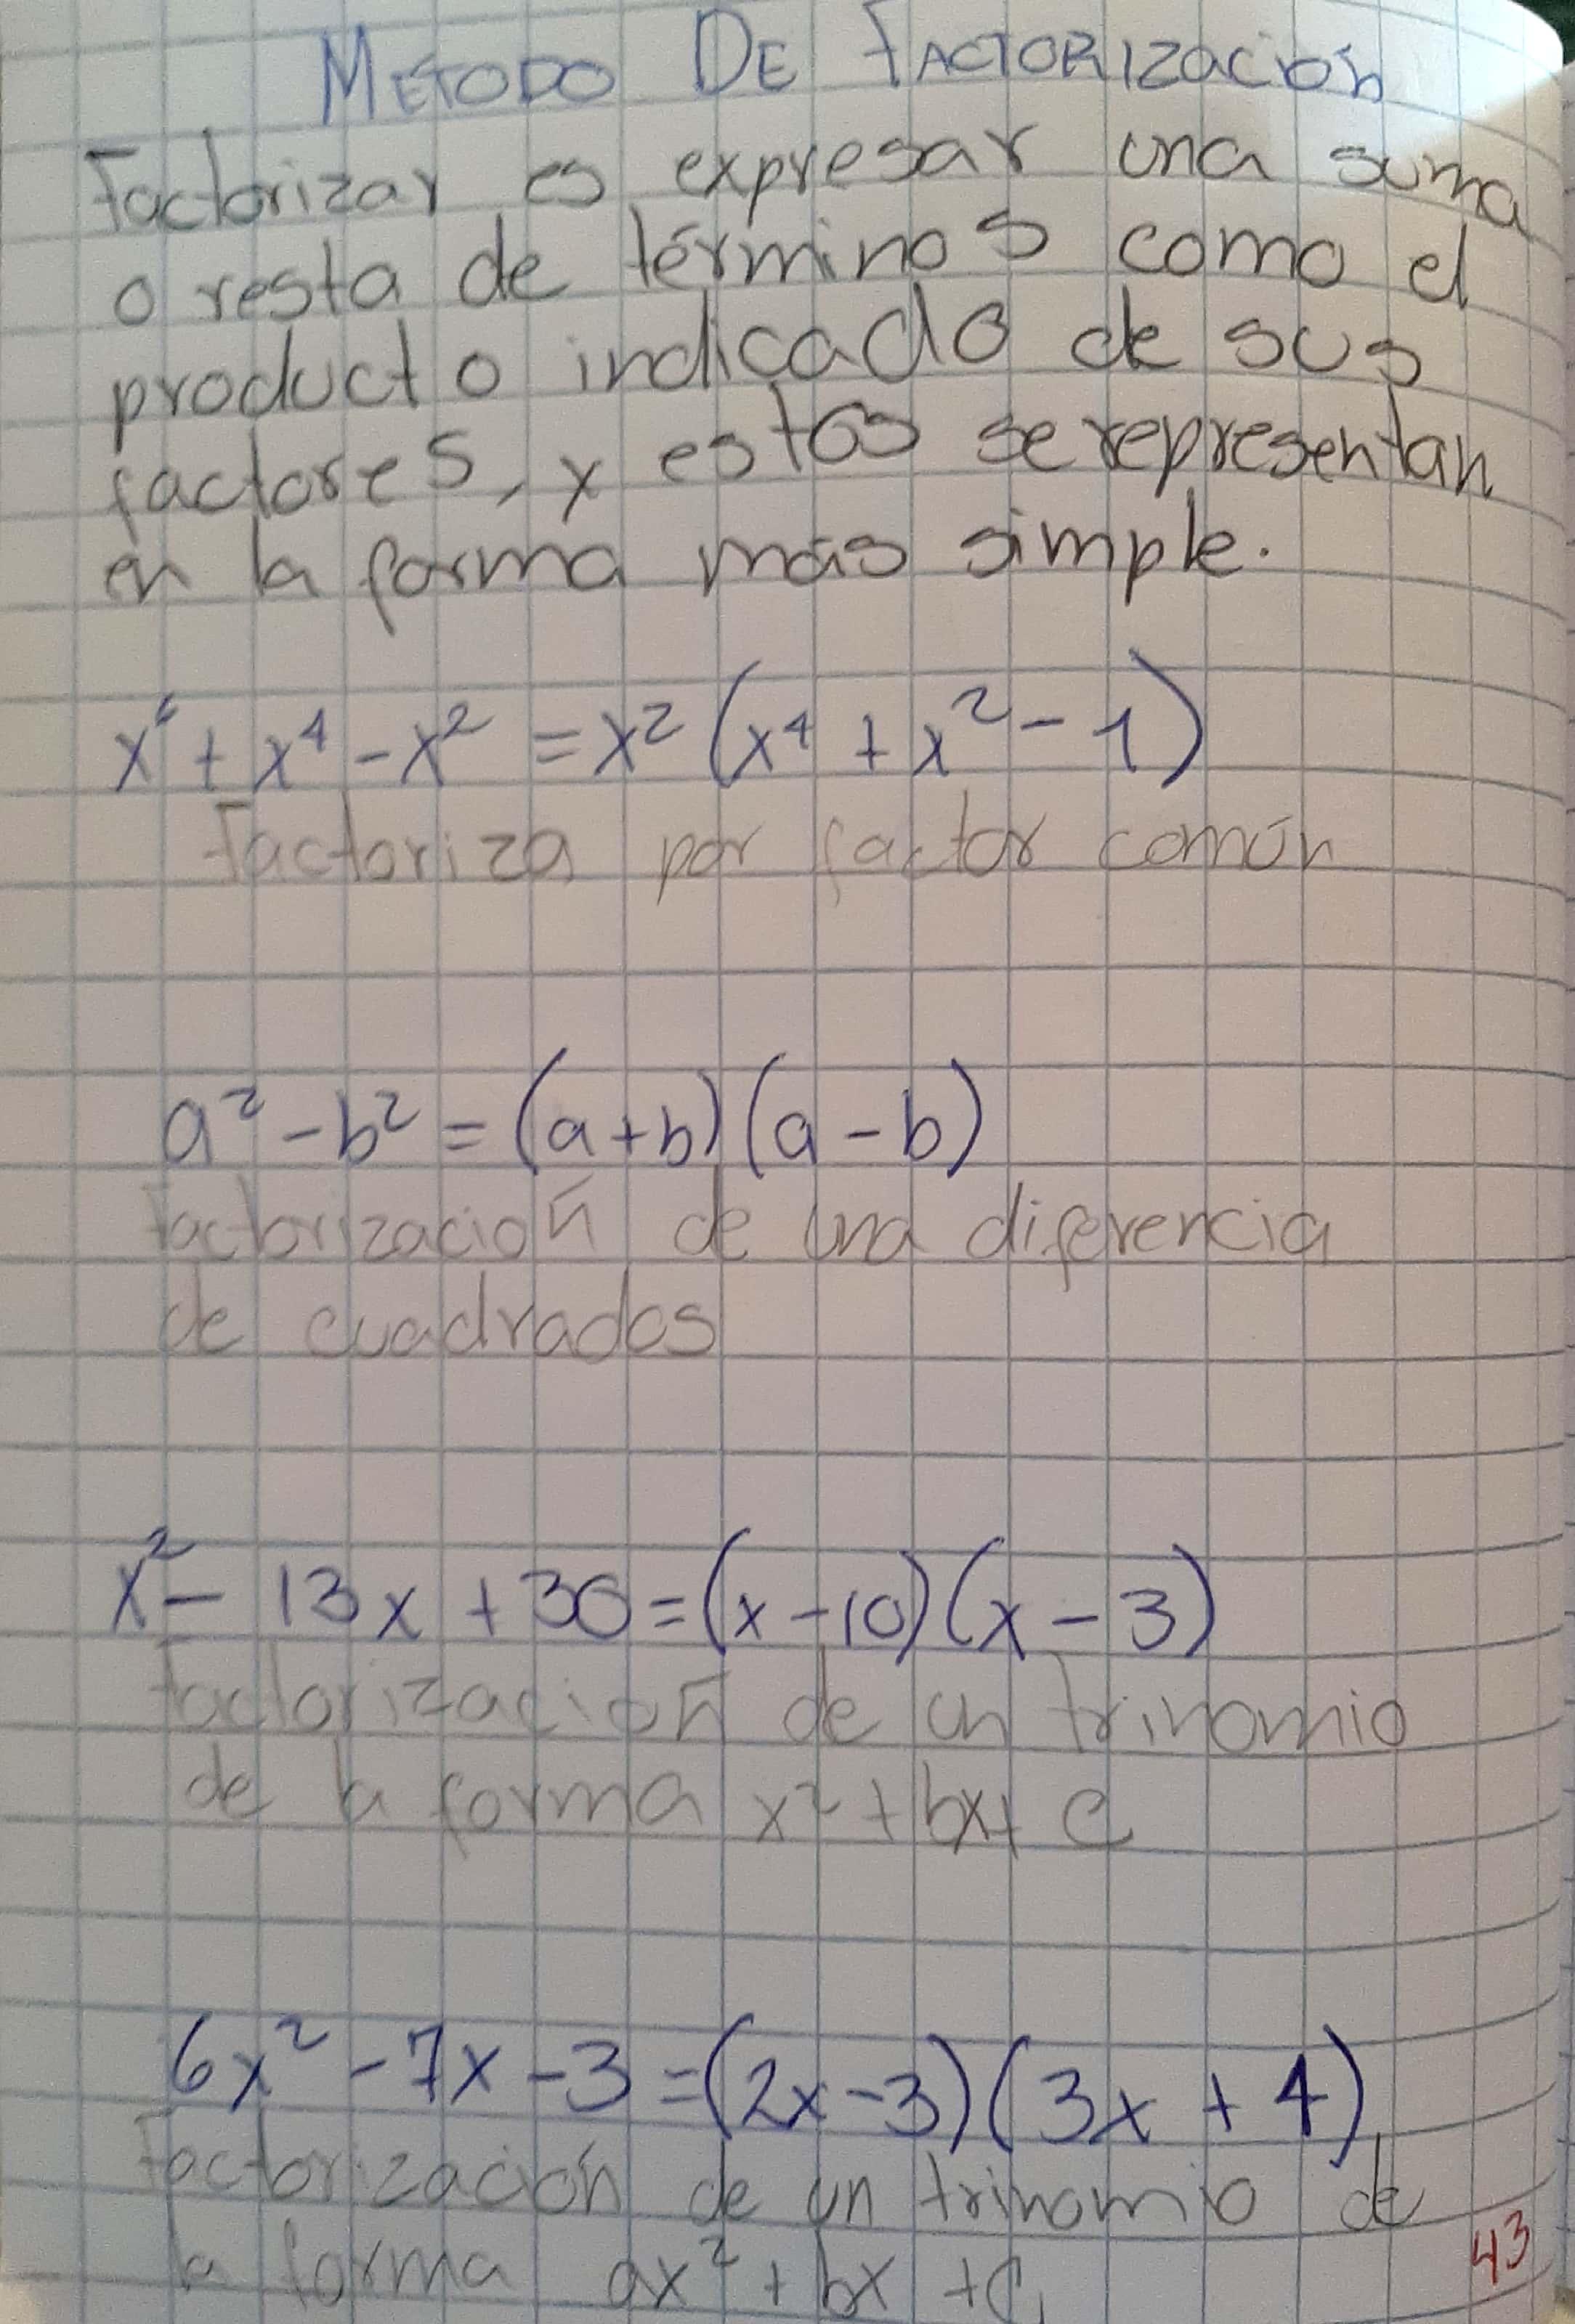 METODO DE FACTORIZACIÓN
Factorizar es expresar una suma
o resta de términos como el
producto indicado de sus
factores, y estos se representan
en la forma más simple.
x⁶ + x⁴ - x² = x² (x⁴ + x² - 1)
Factoriza por factor común
a² - b² = (a + b) (a - b)
Factorización de una diferencia
de cuadrados
x² - 13x + 30 = (x - 10) (x - 3)
Factorización de un trinomio
de la forma x² + bx + c
6x² - 7x - 3 = (2x - 3) (3x + 4)
Factorización de un trinomio de
la forma ax² + bx + c
43